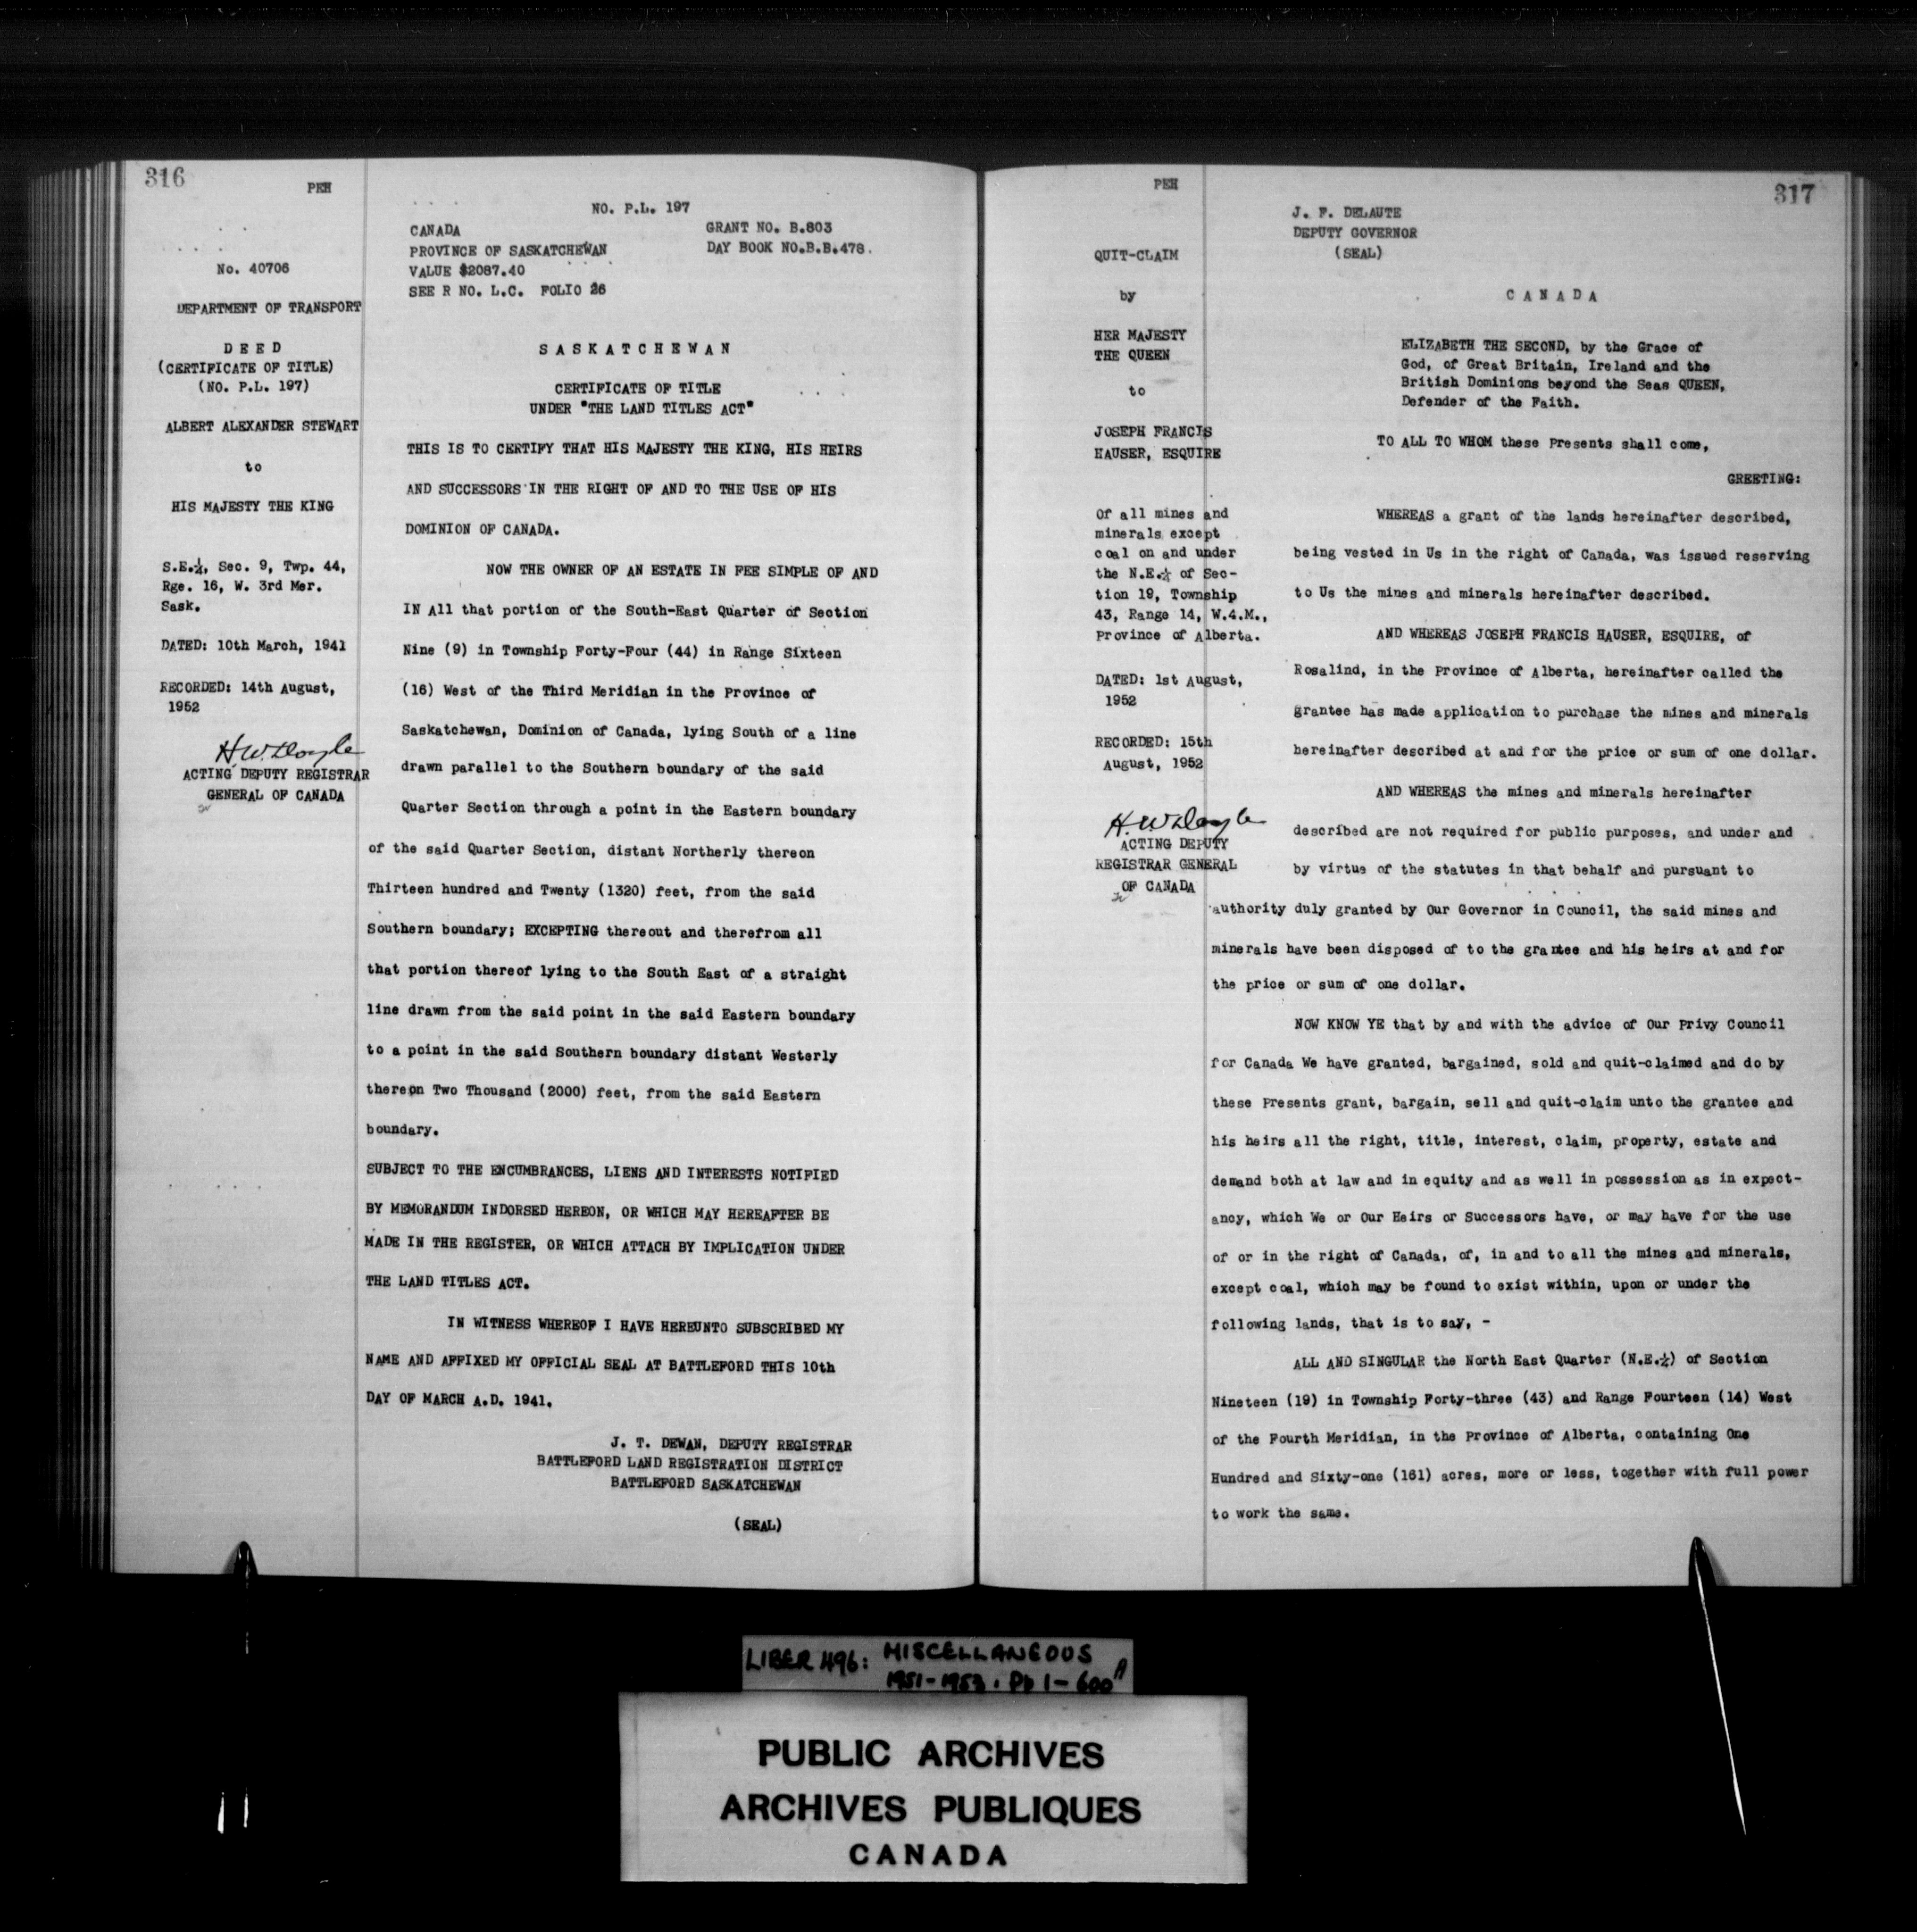 316
PEH
No. 40706
DEPARTMENT OF TRANSPORT
D E E D
(CERTIFICATE OF TITLE)
(NO. P.L. 197)
ALBERT ALEXANDER STEWART
to
HIS MAJESTY THE KING
S.E.¼, Sec. 9, Twp. 44,
Rge. 16, W. 3rd Mer.
Sask.
DATED: 10th March, 1941
RECORDED: 14th August,
1952
H.W. Doyle
ACTING DEPUTY REGISTRAR
GENERAL OF CANADA
NO. P.L. 197
CANADA GRANT NO. B.803
PROVINCE OF SASKATCHEWAN DAY BOOK NO.B.B.478.
VALUE $2087.40
SEE R NO. L.C. FOLIO 26
S A S K A T C H E W A N
CERTIFICATE OF TITLE
UNDER "THE LAND TITLES ACT"
THIS IS TO CERTIFY THAT HIS MAJESTY THE KING, HIS HEIRS
AND SUCCESSORS IN THE RIGHT OF AND TO THE USE OF HIS
DOMINION OF CANADA.
NOW THE OWNER OF AN ESTATE IN FEE SIMPLE OF AND
IN All that portion of the South-East Quarter of Section
Nine (9) in Township Forty-Four (44) in Range Sixteen
(16) West of the Third Meridian in the Province of
Saskatchewan, Dominion of Canada, lying South of a line
drawn parallel to the Southern boundary of the said
Quarter Section through a point in the Eastern boundary
of the said Quarter Section, distant Northerly thereon
Thirteen hundred and Twenty (1320) feet, from the said
Southern boundary; EXCEPTING thereout and therefrom all
that portion thereof lying to the South East of a straight
line drawn from the said point in the said Eastern boundary
to a point in the said Southern boundary distant Westerly
thereon Two Thousand (2000) feet, from the said Eastern
boundary.
SUBJECT TO THE ENCUMBRANCES, LIENS AND INTERESTS NOTIFIED
BY MEMORANDUM INDORSED HEREON, OR WHICH MAY HEREAFTER BE
MADE IN THE REGISTER, OR WHICH ATTACH BY IMPLICATION UNDER
THE LAND TITLES ACT.
IN WITNESS WHEREOF I HAVE HEREUNTO SUBSCRIBED MY
NAME AND AFFIXED MY OFFICIAL SEAL AT BATTLEFORD THIS 10th
DAY OF MARCH A.D. 1941.
J. T. DEWAN, DEPUTY REGISTRAR
BATTLEFORD LAND REGISTRATION DISTRICT
BATTLEFORD SASKATCHEWAN
(SEAL)
PEH
317
QUIT-CLAIM
by
HER MAJESTY
THE QUEEN
to
JOSEPH FRANCIS
HAUSER, ESQUIRE
Of all mines and
minerals except
coal on and under
the N.E.¼ of Sec-
tion 19, Township
43, Range 14, W.4.M.,
Province of Alberta.
DATED: 1st August,
1952
RECORDED: 15th
August, 1952
H.W. Doyle
ACTING DEPUTY
REGISTRAR GENERAL
OF CANADA
J. F. DELAUTE
DEPUTY GOVERNOR
(SEAL)
C A N A D A
ELIZABETH THE SECOND, by the Grace of
God, of Great Britain, Ireland and the
British Dominions beyond the Seas QUEEN,
Defender of the Faith.
TO ALL TO WHOM these Presents shall come,
GREETING:
WHEREAS a grant of the lands hereinafter described,
being vested in Us in the right of Canada, was issued reserving
to Us the mines and minerals hereinafter described.
AND WHEREAS JOSEPH FRANCIS HAUSER, ESQUIRE, of
Rosalind, in the Province of Alberta, hereinafter called the
grantee has made application to purchase the mines and minerals
hereinafter described at and for the price or sum of one dollar.
AND WHEREAS the mines and minerals hereinafter
described are not required for public purposes, and under and
by virtue of the statutes in that behalf and pursuant to
authority duly granted by Our Governor in Council, the said mines and
minerals have been disposed of to the grantee and his heirs at and for
the price or sum of one dollar.
NOW KNOW YE that by and with the advice of Our Privy Council
for Canada We have granted, bargained, sold and quit-claimed and do by
these Presents grant, bargain, sell and quit-claim unto the grantee and
his heirs all the right, title, interest, claim, property, estate and
demand both at law and in equity and as well in possession as in expect-
ancy, which We or Our Heirs or Successors have, or may have for the use
of or in the right of Canada, of, in and to all the mines and minerals,
except coal, which may be found to exist within, upon or under the
following lands, that is to say, -
ALL AND SINGULAR the North East Quarter (N.E.¼) of Section
Nineteen (19) in Township Forty-three (43) and Range Fourteen (14) West
of the Fourth Meridian, in the Province of Alberta, containing One
Hundred and Sixty-one (161) acres, more or less, together with full power
to work the same.
LIBER 496: MISCELLANEOUS
1951-1953. Pp 1-600A
PUBLIC ARCHIVES
ARCHIVES PUBLIQUES
CANADA